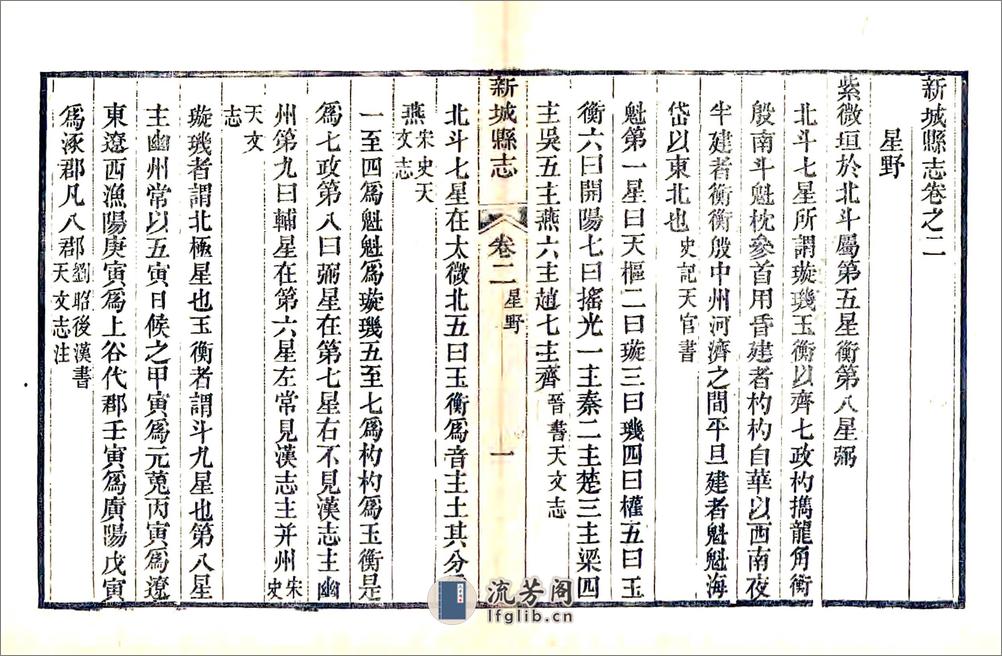 新城縣志卷之二
星野
紫微垣於北斗屬第五星衡第八星弼
北斗七星所謂璇璣玉衡以齊七政杓擕龍角衡
殷南斗魁枕參首用昏建者杓杓自華以西南夜
半建者衡衡殷中州河濟之間平旦建者魁魁海
岱以東北也史記天官書
魁第一星曰天樞二曰璇三曰璣四曰權五曰玉
衡六曰開陽七曰搖光一主秦二主楚三主梁四
主吳五主燕六主趙七主齊晉書天文志
新城縣志 卷二 星野 一
北斗七星在太微北五曰玉衡爲音主土其分
燕宋史天文志
一至四爲魁魁爲璇璣五至七爲杓杓爲玉衡是
爲七政第八曰弼星在第七星右不見漢志主幽
州第九曰輔星在第六星左常見漢志主并州宋史
天文志
璇璣者謂北極星也玉衡者謂斗九星也第八星
主幽州常以五寅日候之甲寅爲元菟丙寅爲遼
東遼西漁陽庚寅爲上谷代郡壬寅爲廣陽戊寅
爲涿郡凡八郡劉昭後漢書天文志注
流芳阁
lfglib.cn